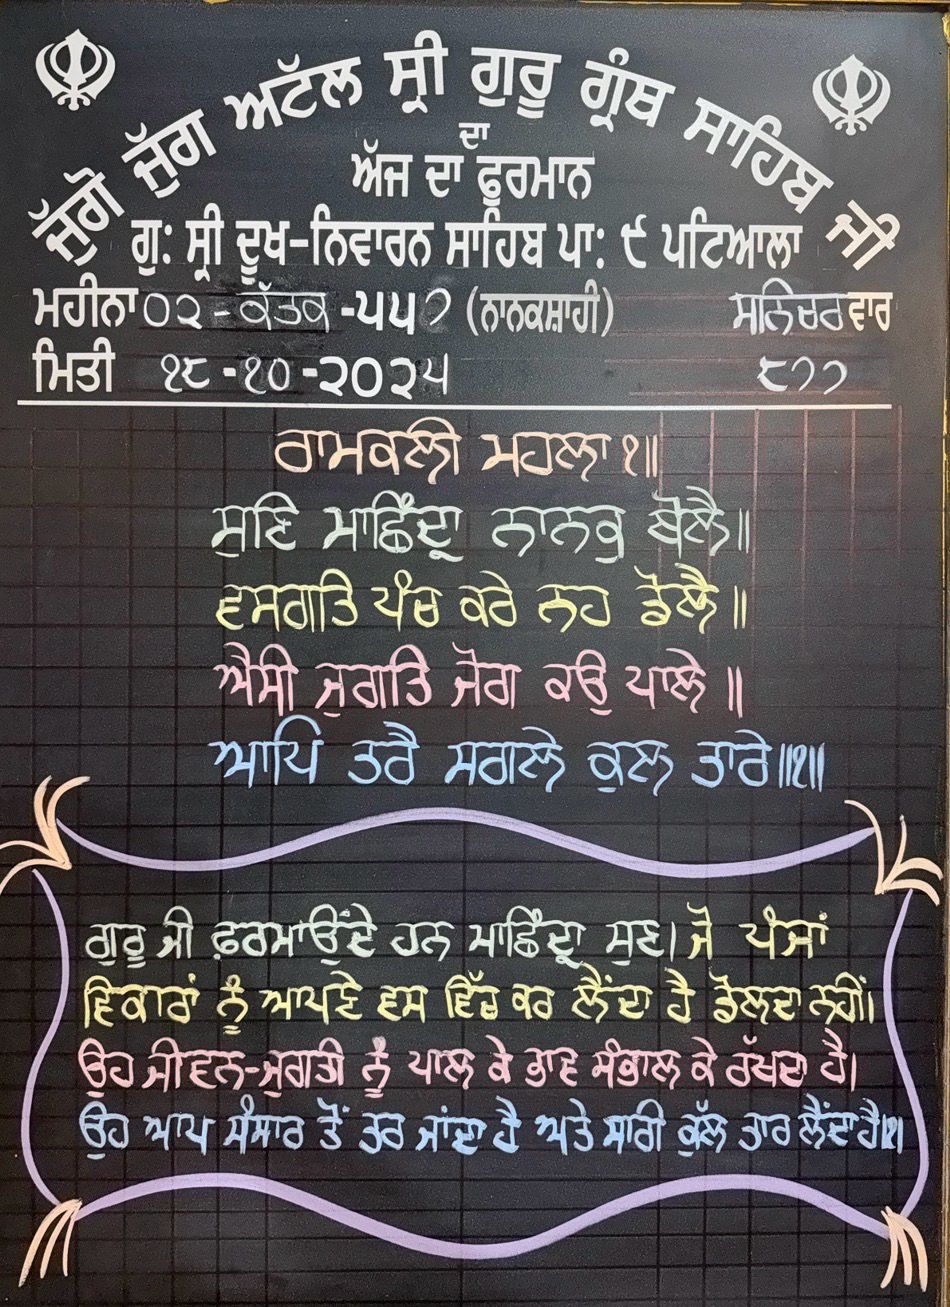 ਜੁੱਗੋ ਜੁੱਗ ਅਟੱਲ ਸ੍ਰੀ ਗੁਰੂ ਗ੍ਰੰਥ ਸਾਹਿਬ ਜੀ
ਦਾ
ਅੱਜ ਦਾ ਫੁਰਮਾਨ
ਗੁ: ਸ੍ਰੀ ਦੂਖ-ਨਿਵਾਰਨ ਸਾਹਿਬ ਪਾ: ੯ ਪਟਿਆਲਾ
ਮਹੀਨਾ ੦੨ - ਕੱਤਕ - ੫੫੭ (ਨਾਨਕਸ਼ਾਹੀ) ਸਨਿਚਰਵਾਰ
ਮਿਤੀ ੧੮ -੧੦ -੨੦੨੫ ੮੭੭
ਰਾਮਕਲੀ ਮਹਲਾ ੧॥
ਸੁਣਿ ਮਾਛਿੰਦ੍ਰਾ ਨਾਨਕੁ ਬੋਲੈ॥
ਵਸਗਤਿ ਪੰਚ ਕਰੇ ਨਹ ਡੋਲੈ॥
ਐਸੀ ਜੁਗਤਿ ਜੋਗ ਕਉ ਪਾਲੇ॥
ਆਪਿ ਤਰੈ ਸਗਲੇ ਕੁਲ ਤਾਰੇ॥੧॥
ਗੁਰੂ ਜੀ ਫ਼ਰਮਾਉਂਦੇ ਹਨ ਮਾਛਿੰਦ੍ਰਾ ਸੁਣ। ਜੋ ਪੰਜਾਂ
ਵਿਕਾਰਾਂ ਨੂੰ ਆਪਣੇ ਵਸ ਵਿੱਚ ਕਰ ਲੈਂਦਾ ਹੈ ਡੋਲਦਾ ਨਹੀਂ।
ਉਹ ਜੀਵਨ-ਜੁਗਤੀ ਨੂੰ ਪਾਲ ਕੇ ਭਾਵ ਸੰਭਾਲ ਕੇ ਰੱਖਦਾ ਹੈ।
ਉਹ ਆਪ ਸੰਸਾਰ ਤੋਂ ਤਰ ਜਾਂਦਾ ਹੈ ਅਤੇ ਸਾਰੀ ਕੁੱਲ ਤਾਰ ਲੈਂਦਾ ਹੈ।੧।